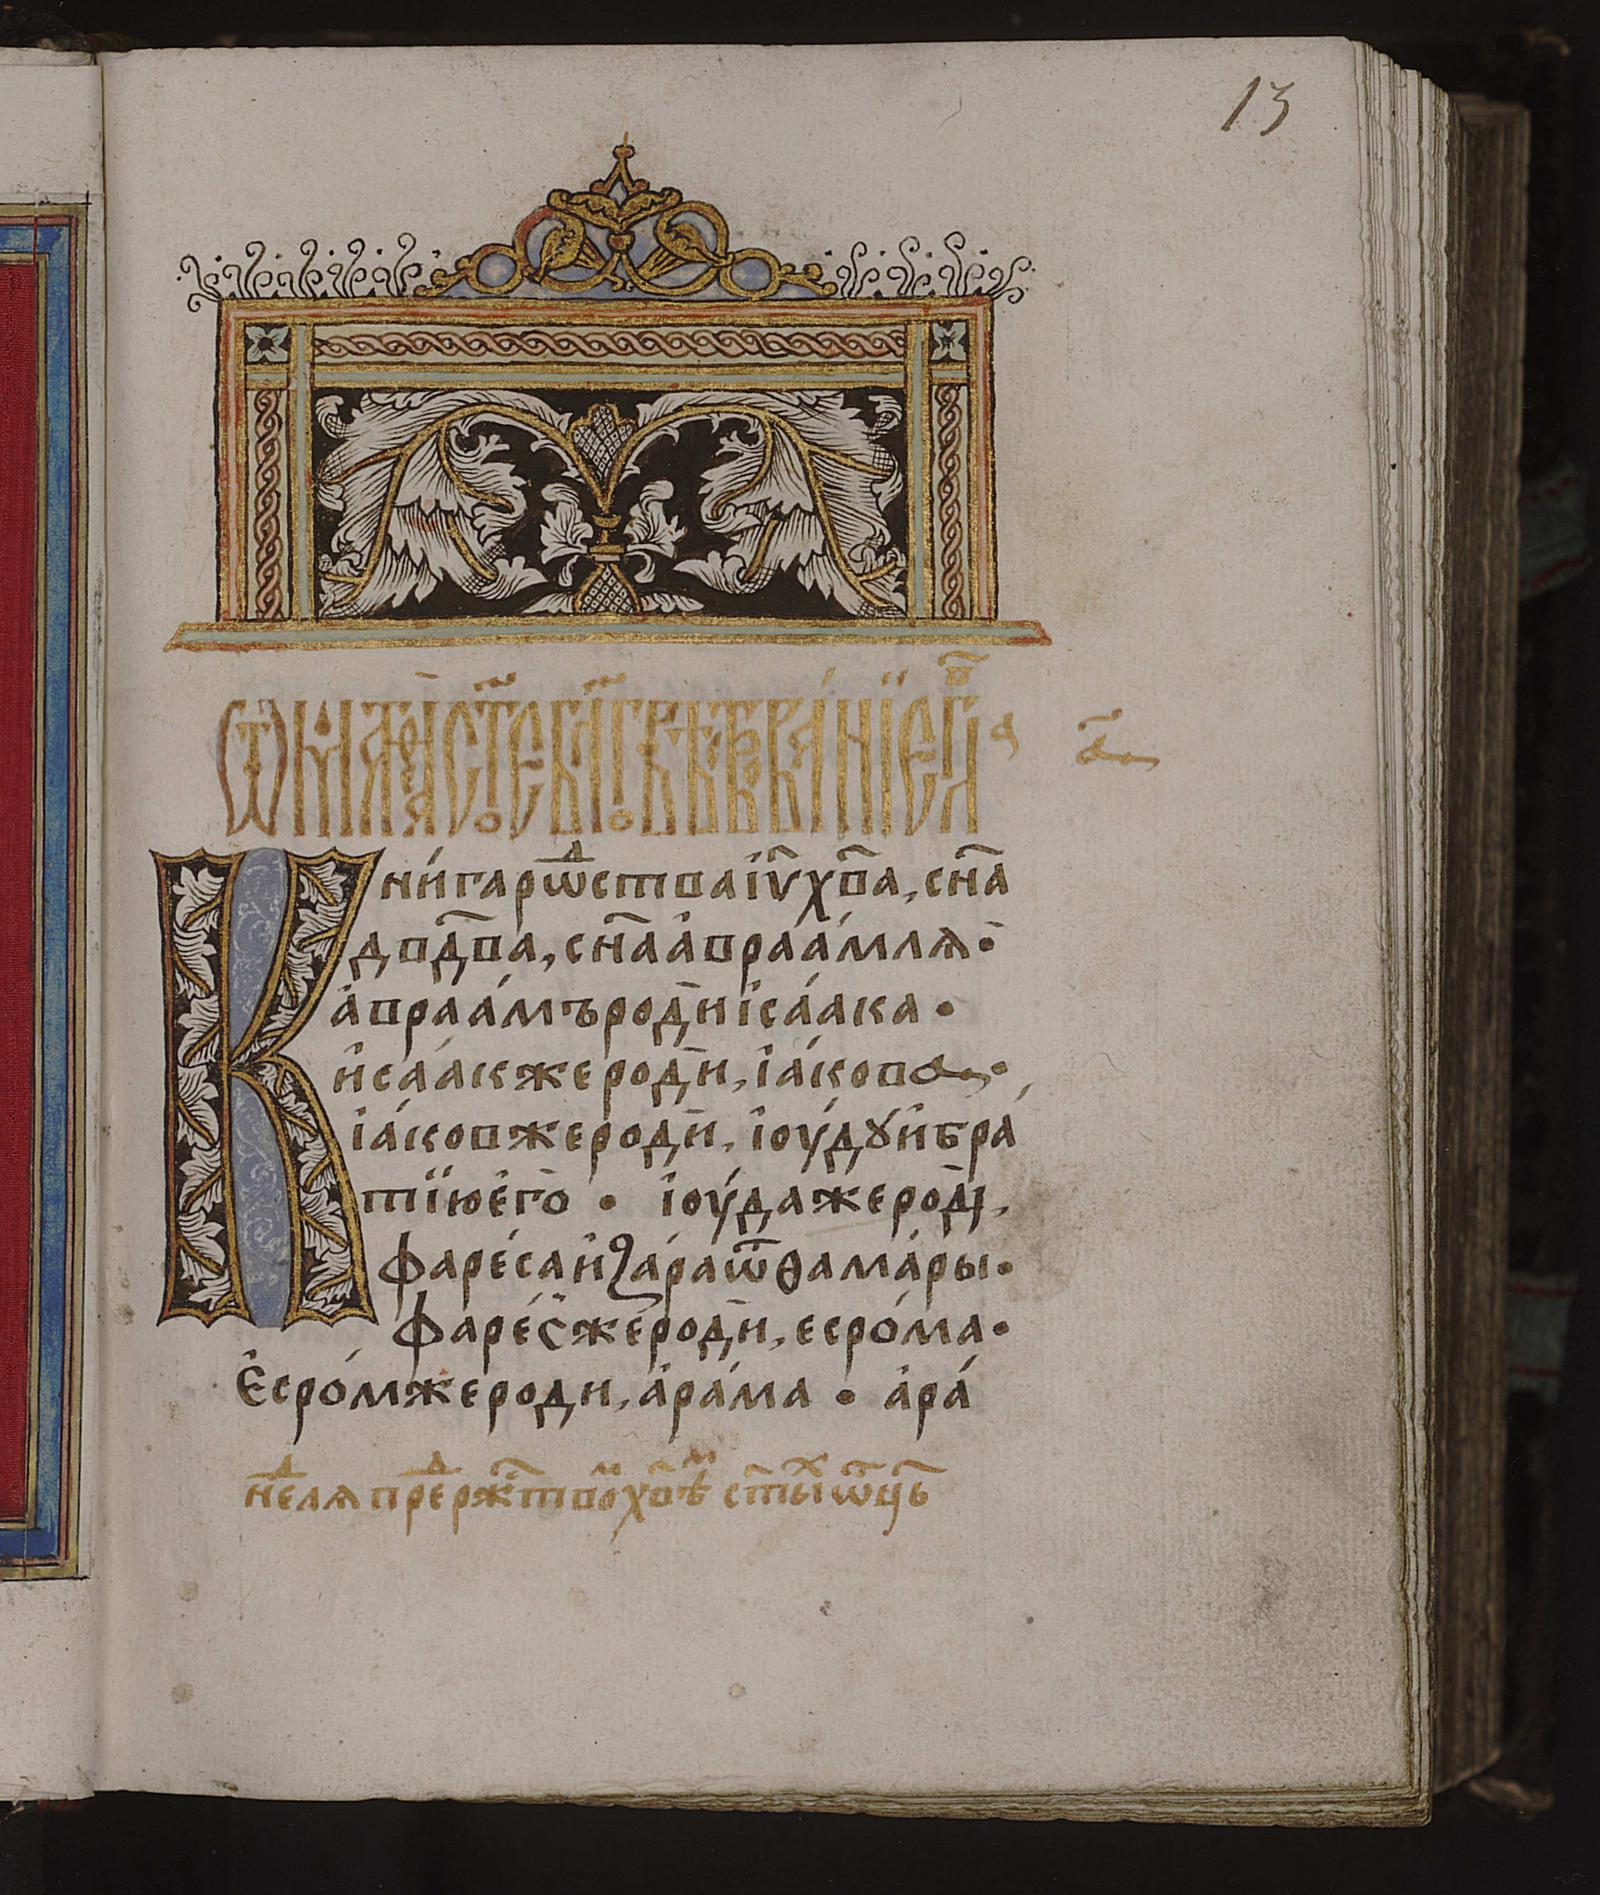 13
Ѿ маѳ́еа ст҃ое бл҃говѣствова́нїе гл҃в а
а҃
Кни́га рѡдства і҃у х҃ва, сн҃а
дв҃два, сн҃а а҆враа́млѧ ·
а҆враа́мъ роди̏ іса́ака ·
и҆са́ак же роди̏, і҆а́кова ·
і҆а́ков же роди̏, і҆ꙋ́дꙋ и҆ бра́
тїю е҆го̀ · і҆ꙋ́да же роди̏,
фаре́са и҆ за́ра ѿ ѳама́ры ·
фаре́с же роди̏, есро́ма ·
Е҆сро́м же роди, а҆ра́ма · а҆ра́
нⷣелѧ преⷣ ржⷭ҇твоⷨ хв҃ѣⷨ ст҃ыⷯ ѿц҃ь